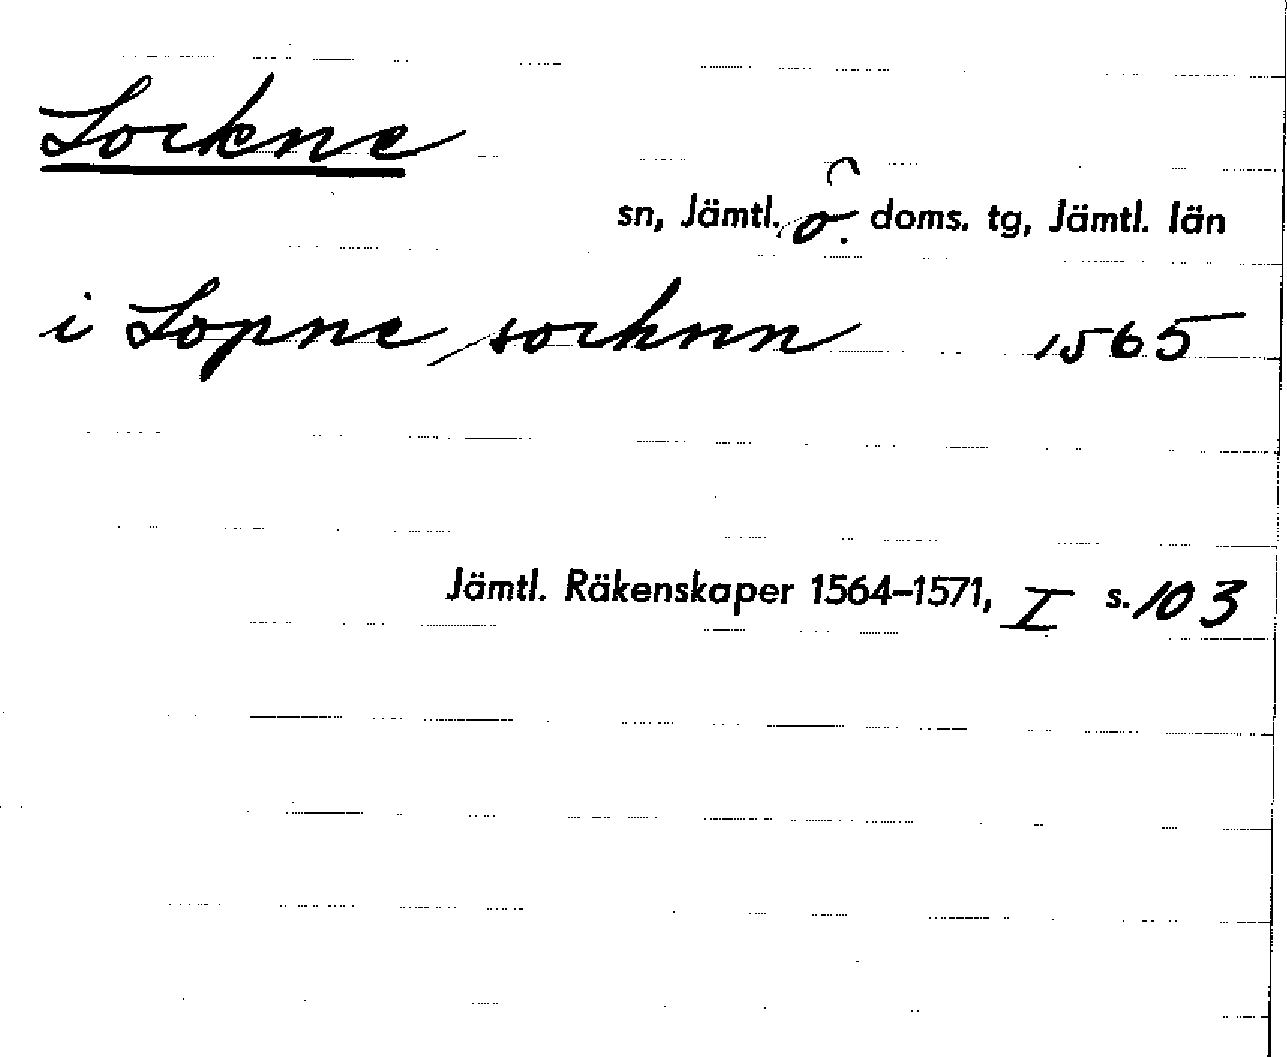 Lockne
sn, Jämtl. ö. doms. tg, Jämtl. län
i Lopne socknn 1565
Jämtl. Räkenskaper 1564–1571, I s. 103